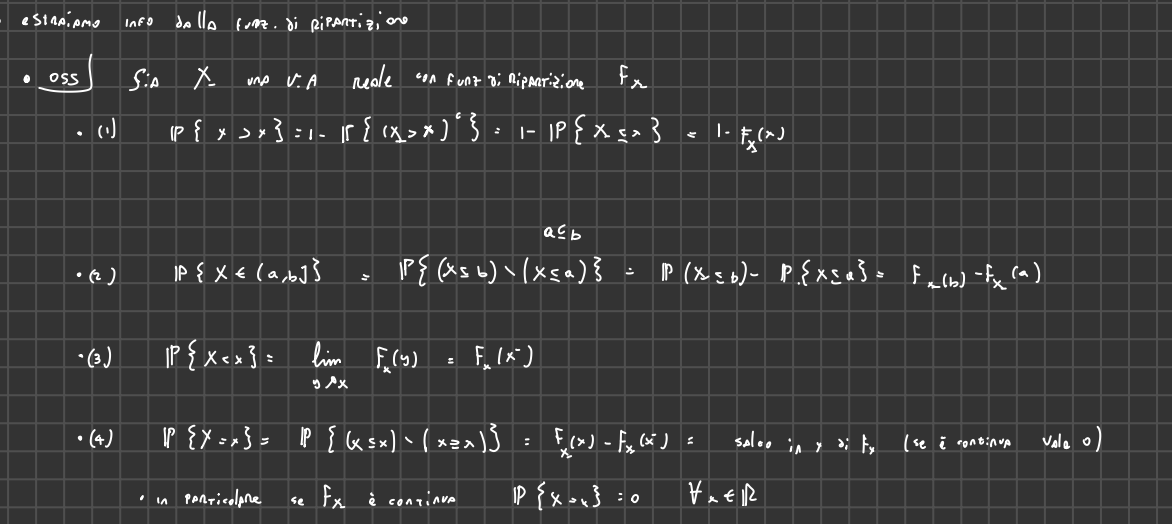 estraiamo info dalla funz. di ripartizione
• oss Sia X una v.A reale con funz di Ripartizione F_x
• (1) ℙ{ x > x } = 1 - ℙ{ (X > x)^c } = 1 - ℙ{ X ≤ x } = 1 - F_x(x)
a ≤ b
• (2) ℙ{ X ∈ (a,b] } = ℙ{ (X ≤ b) \ (X ≤ a) } = ℙ (X ≤ b) - ℙ{ X ≤ a } = F_x(b) - F_x(a)
• (3) ℙ{ X < x } = lim_{y↗x} F_x(y) = F_x(x⁻)
• (4) ℙ{ X = x } = ℙ{ (X ≤ x) \ ( x ≥ x) } = F_x(x) - F_x(x⁻) = salto in x di F_x (se è continua vale 0)
• in particolare se F_x è continua ℙ{ X = x } = 0 ∀ x ∈ ℝ